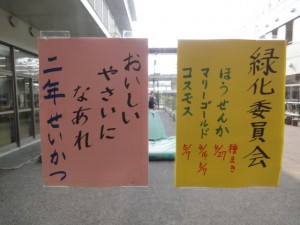 おいしい
やさいに
なあれ
二年せいかつ
緑化委員会
種まき
ほうせんか 4/27
マリーゴールド 4/16 5/9
コスモス 5/7